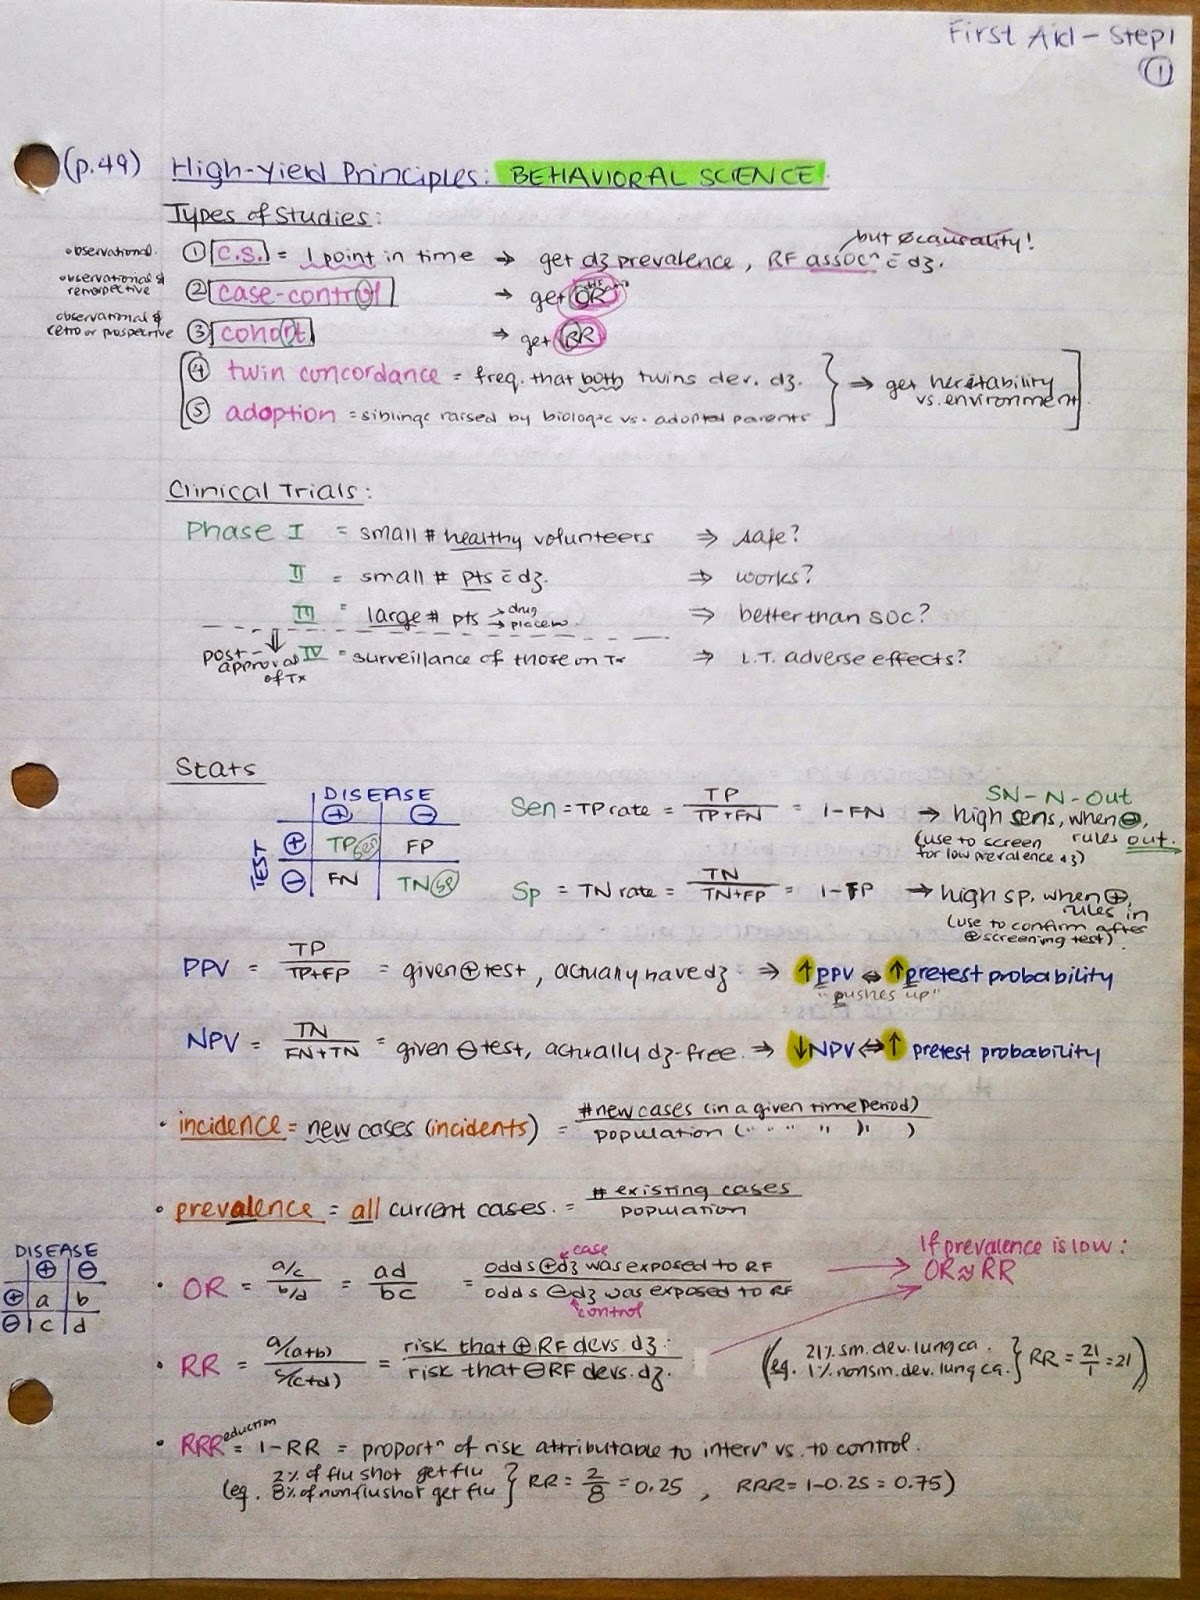 First Aid - Step 1
①
(p.49) High-Yield Principles: BEHAVIORAL SCIENCE.
Types of Studies:
but Ø causality!
observational. ① C.S. = 1 point in time → get dz prevalence, RF assocⁿ c̄ dz.
observational & retrospective ② case-control → get OR
observational & retro or prospective ③ cohort → get RR
④ twin concordance = freq. that both twins dev. dz.
⑤ adoption = siblings raised by biologic vs. adopted parents
} ⇒ get heritability vs. environment.
Clinical Trials:
Phase I = small # healthy volunteers ⇒ safe?
II = small # pts c̄ dz. ⇒ works?
III = large # pts → drug → placebo ⇒ better than SOC?
post-approval of Tx ⇓ IV = surveillance of those on Tx ⇒ L.T. adverse effects?
Stats
DISEASE
⊕ ⊖
TEST ⊕ TP Sen FP
⊖ FN TN Sp
SN-N-Out
Sen = TP rate = TP/TP+FN = 1-FN → high sens, when ⊖, rules out.
(use to screen for low prevalence dz)
Sp = TN rate = TN/TN+FP = 1-FP → high sp, when ⊕, rules in
(use to confirm after ⊕ screening test).
PPV = TP/TP+FP = given ⊕ test, actually have dz ⇒ ↑PPV ⇔ ↑pretest probability
"pushes up"
NPV = TN/FN+TN = given ⊖ test, actually dz-free. ⇒ ↓NPV ⇔ ↑ pretest probability
• incidence = new cases (incidents) = # new cases (in a given time period)/population (" " " " " )
• prevalence = all current cases. = # existing cases/population
DISEASE
⊕ ⊖
⊕ a b
⊖ c d
case
• OR = a/c / b/d = ad/bc = odds ⊕dz was exposed to RF / odds ⊖dz was exposed to RF
control
If prevalence is low:
OR ≈ RR
• RR = a/(a+b) / c/(c+d) = risk that ⊕ RF devs. dz. / risk that ⊖ RF devs. dz.
(eg. 21% sm. dev. lung ca. 1% nonsm. dev. lung ca. } RR = 21/1 = 21)
• RRReduction = 1-RR = proportⁿ of risk attributable to intervⁿ vs. to control.
(eg. 2% of flu shot get flu 8% of nonflushot get flu } RR = 2/8 = 0.25, RRR = 1-0.25 = 0.75)